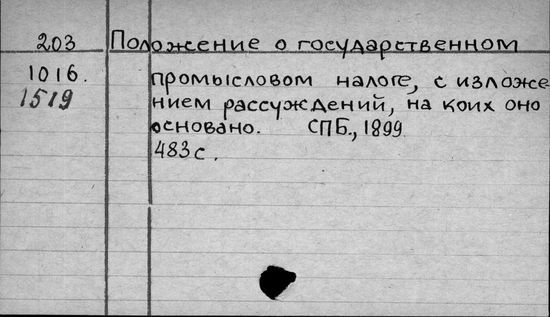 203 Положение о государственном
1016. промысловом налоге, с изложе
1519 нием рассуждений, на коих оно
основано. СПБ., 1899
483 с.